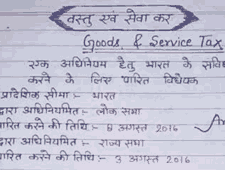 वस्तु एवं सेवा कर
Goods & Service Tax
एक अधिनियम हेतु भारत के संवि
करने के लिए पारित विधेयक
प्रादेशिक सीमा :- भारत
द्वारा अधिनियमित :- लोक सभा
पारित करने की तिथि :- 8 अगस्त 2016
द्वारा अधिनियमित :- राज्य सभा
पारित करने की तिथि :- 3 अगस्त 2016